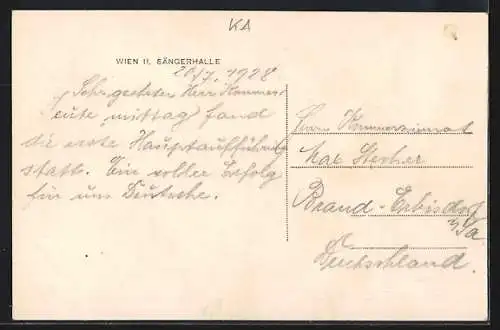 KA
WIEN II, SÄNGERHALLE
20/7. 1928
Sehr geehrter Herr Kommer-
eute mittag fand
die erste Hauptaufführung
statt. Ein voller Erfolg
für uns Deutsche.
Herrn Kommerzienrat
Max
Brand-Erbisdorf
i/Sa.
Deutschland.